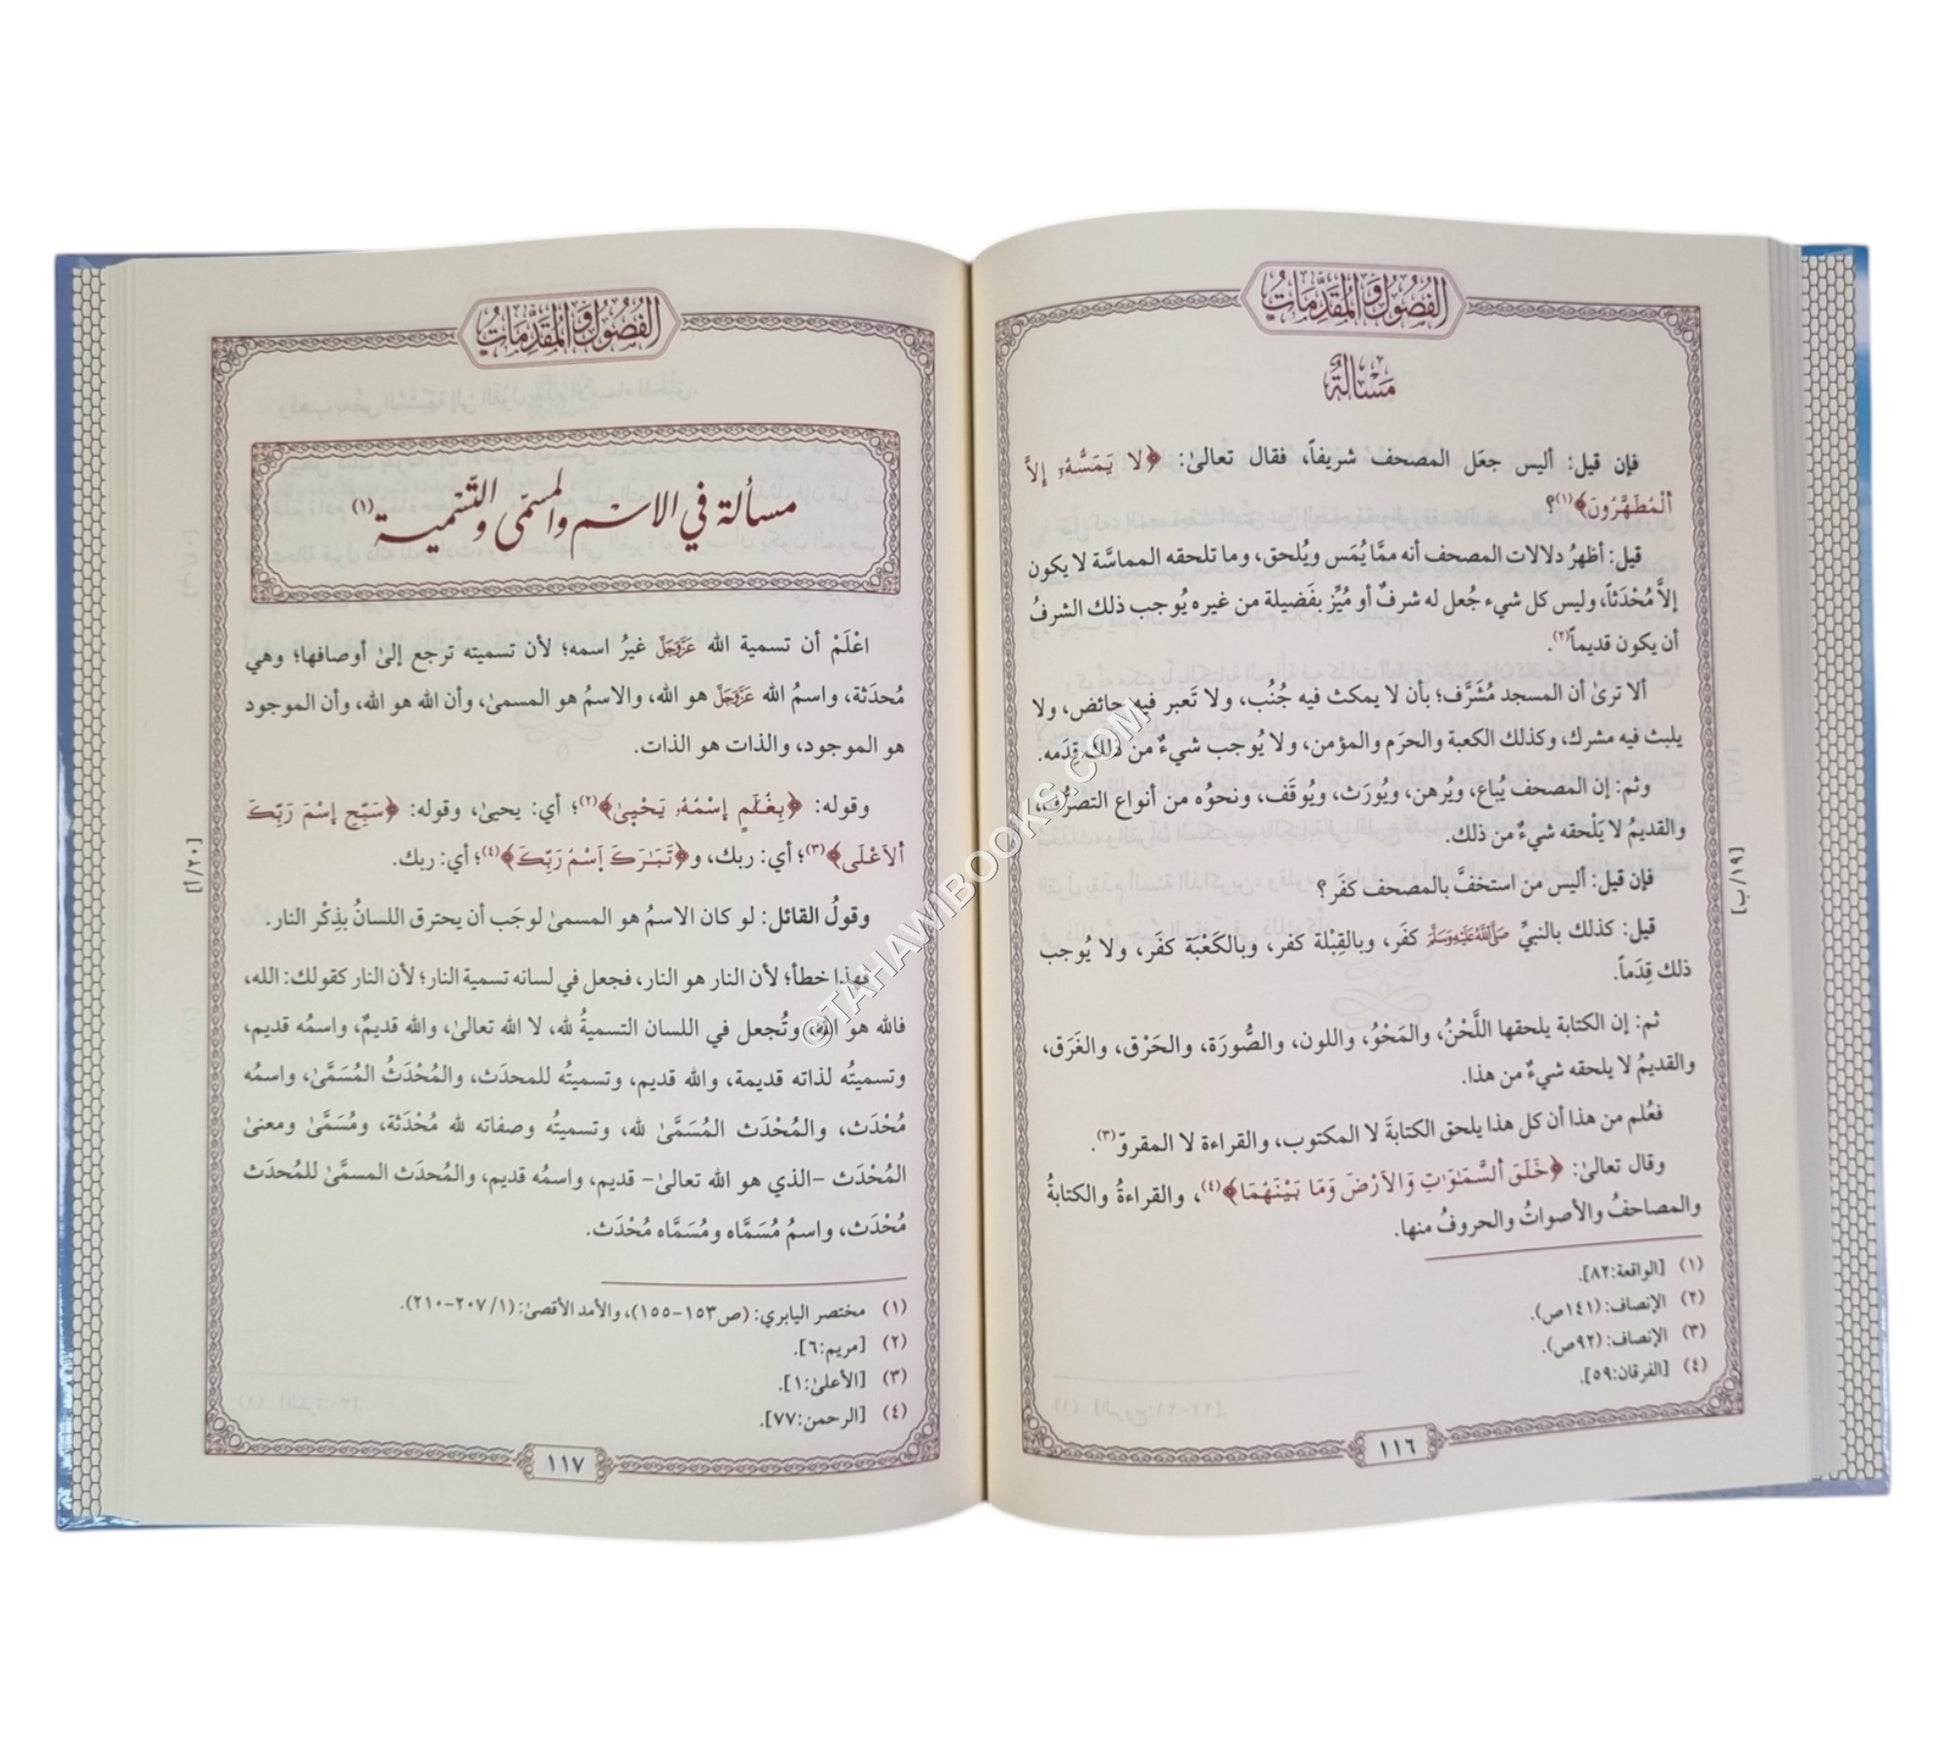 الفصول والمقدمات
مسألة
فإن قيل: أليس جعَل المصحف شريفاً، فقال تعالىٰ: ﴿لا يَمَسُّهُۥ إِلاَّ
اَ۬لْمُطَهَّرُونَ﴾(١)؟
قيل: أظهرُ دلالات المصحف أنه ممَّا يُمَس ويُلحق، وما تلحقه المماسَّة لا يكون
إلاَّ مُحْدَثاً، وليس كل شيء جُعل له شرفٌ أو مُيِّز بفَضيلة من غيره يُوجب ذلك الشرفُ
أن يكون قديماً(٢).
ألا ترىٰ أن المسجد مُشَرَّف؛ بأن لا يمكث فيه جُنُب، ولا تَعبر فيه حائض، ولا
يلبث فيه مشرك، وكذلك الكعبة والحرَم والمؤمن، ولا يُوجب شيءٌ من ذلك قِدَمه.
وثم: إن المصحف يُباع، ويُرهن، ويُورَث، ويُوقَف، ونحوُه من أنواع التصرُّف،
والقديمُ لا يَلْحقه شيءٌ من ذلك.
فإن قيل: أليس من استخفَّ بالمصحف كفَر؟
قيل: كذلك بالنبيِّ ﷺ كفَر، وبالقِبْلة كفر، وبالكَعْبَة كفَر، ولا يُوجب
ذلك قِدَماً.
ثم: إن الكتابة يلحقها اللَّحْنُ، والمَحْوُ، واللون، والصُّورَة، والحَرْق، والغَرَق،
والقديمُ لا يلحقه شيءٌ من هذا.
فعُلم من هذا أن كل هذا يلحق الكتابةَ لا المكتوب، والقراءة لا المقروّ(٣).
وقال تعالىٰ: ﴿خَلَقَ اَ۬لسَّمَٰوَٰتِ وَالاَرْضَ وَمَا بَيْنَهُمَا﴾(٤)، والقراءةُ والكتابةُ
والمصاحفُ والأصواتُ والحروفُ منها.
[١٩/ب]
(١) [الواقعة:٨٢].
(٢) الإنصاف: (١٤١ص).
(٣) الإنصاف: (٩٢ص).
(٤) [الفرقان:٥٩].
١١٦
الفصول والمقدمات
مسألة في الاسم والمسمى والتسمية(١)
اعْلَمْ أن تسمية الله عَزَّوَجَلَّ غيرُ اسمه؛ لأن تسميته ترجع إلىٰ أوصافها؛ وهي
مُحدَثة، واسمُ الله عَزَّوَجَلَّ هو الله، والاسمُ هو المسمىٰ، وأن الله هو الله، وأن الموجود
هو الموجود، والذات هو الذات.
وقوله: ﴿بِغُلَٰمٍ اِسْمُهُۥ يَحْيۭيٰ﴾(٢)؛ أي: يحيىٰ، وقوله: ﴿سَبِّحِ اِسْمَ رَبِّكَ
اَ۬لاَعْلَي﴾(٣)؛ أي: ربك، و﴿تَبَٰرَكَ اَسْمُ رَبِّكَ﴾(٤)؛ أي: ربك.
وقولُ القائل: لو كان الاسمُ هو المسمىٰ لوجَب أن يحترق اللسانُ بذِكْر النار.
فهذا خطأ؛ لأن النار هو النار، فجعل في لسانه تسمية النار؛ لأن النار كقولك: الله،
فالله هو الله، وتُجعل في اللسان التسميةُ لله، لا الله تعالىٰ، والله قديمٌ، واسمُه قديم،
وتسميتُه لذاته قديمة، والله قديم، وتسميتُه للمحدَث، والمُحْدَثُ المُسَمَّىٰ، واسمُه
مُحْدَث، والمُحْدَث المُسَمَّىٰ لله، وتسميتُه وصفاته لله مُحْدَثة، ومُسَمَّىٰ ومعنىٰ
المُحْدَث –الذي هو الله تعالىٰ– قديم، واسمُه قديم، والمُحدَث المسمَّىٰ للمُحدَث
مُحْدَث، واسمُ مُسَمَّاه ومُسَمَّاه مُحْدَث.
[٢٠/أ]
(١) مختصر اليابري: (ص١٥٣–١٥٥)، والأمد الأقصىٰ: (١/٢٠٧–٢١٠).
(٢) [مريم:٦].
(٣) [الأعلىٰ:١].
(٤) [الرحمن:٧٧].
١١٧
©TAHAWIBOOKS.COM